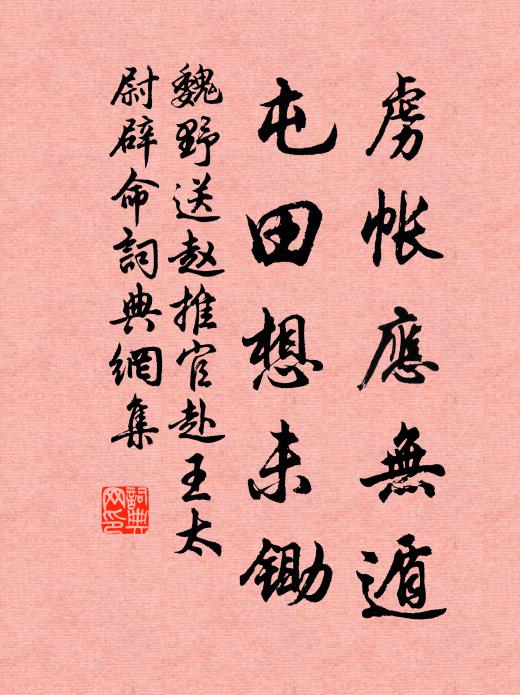 虏帐應無遁
屯田想未锄
魏野送赵推官赴王太
尉辟命詞典網集
詞典
网印